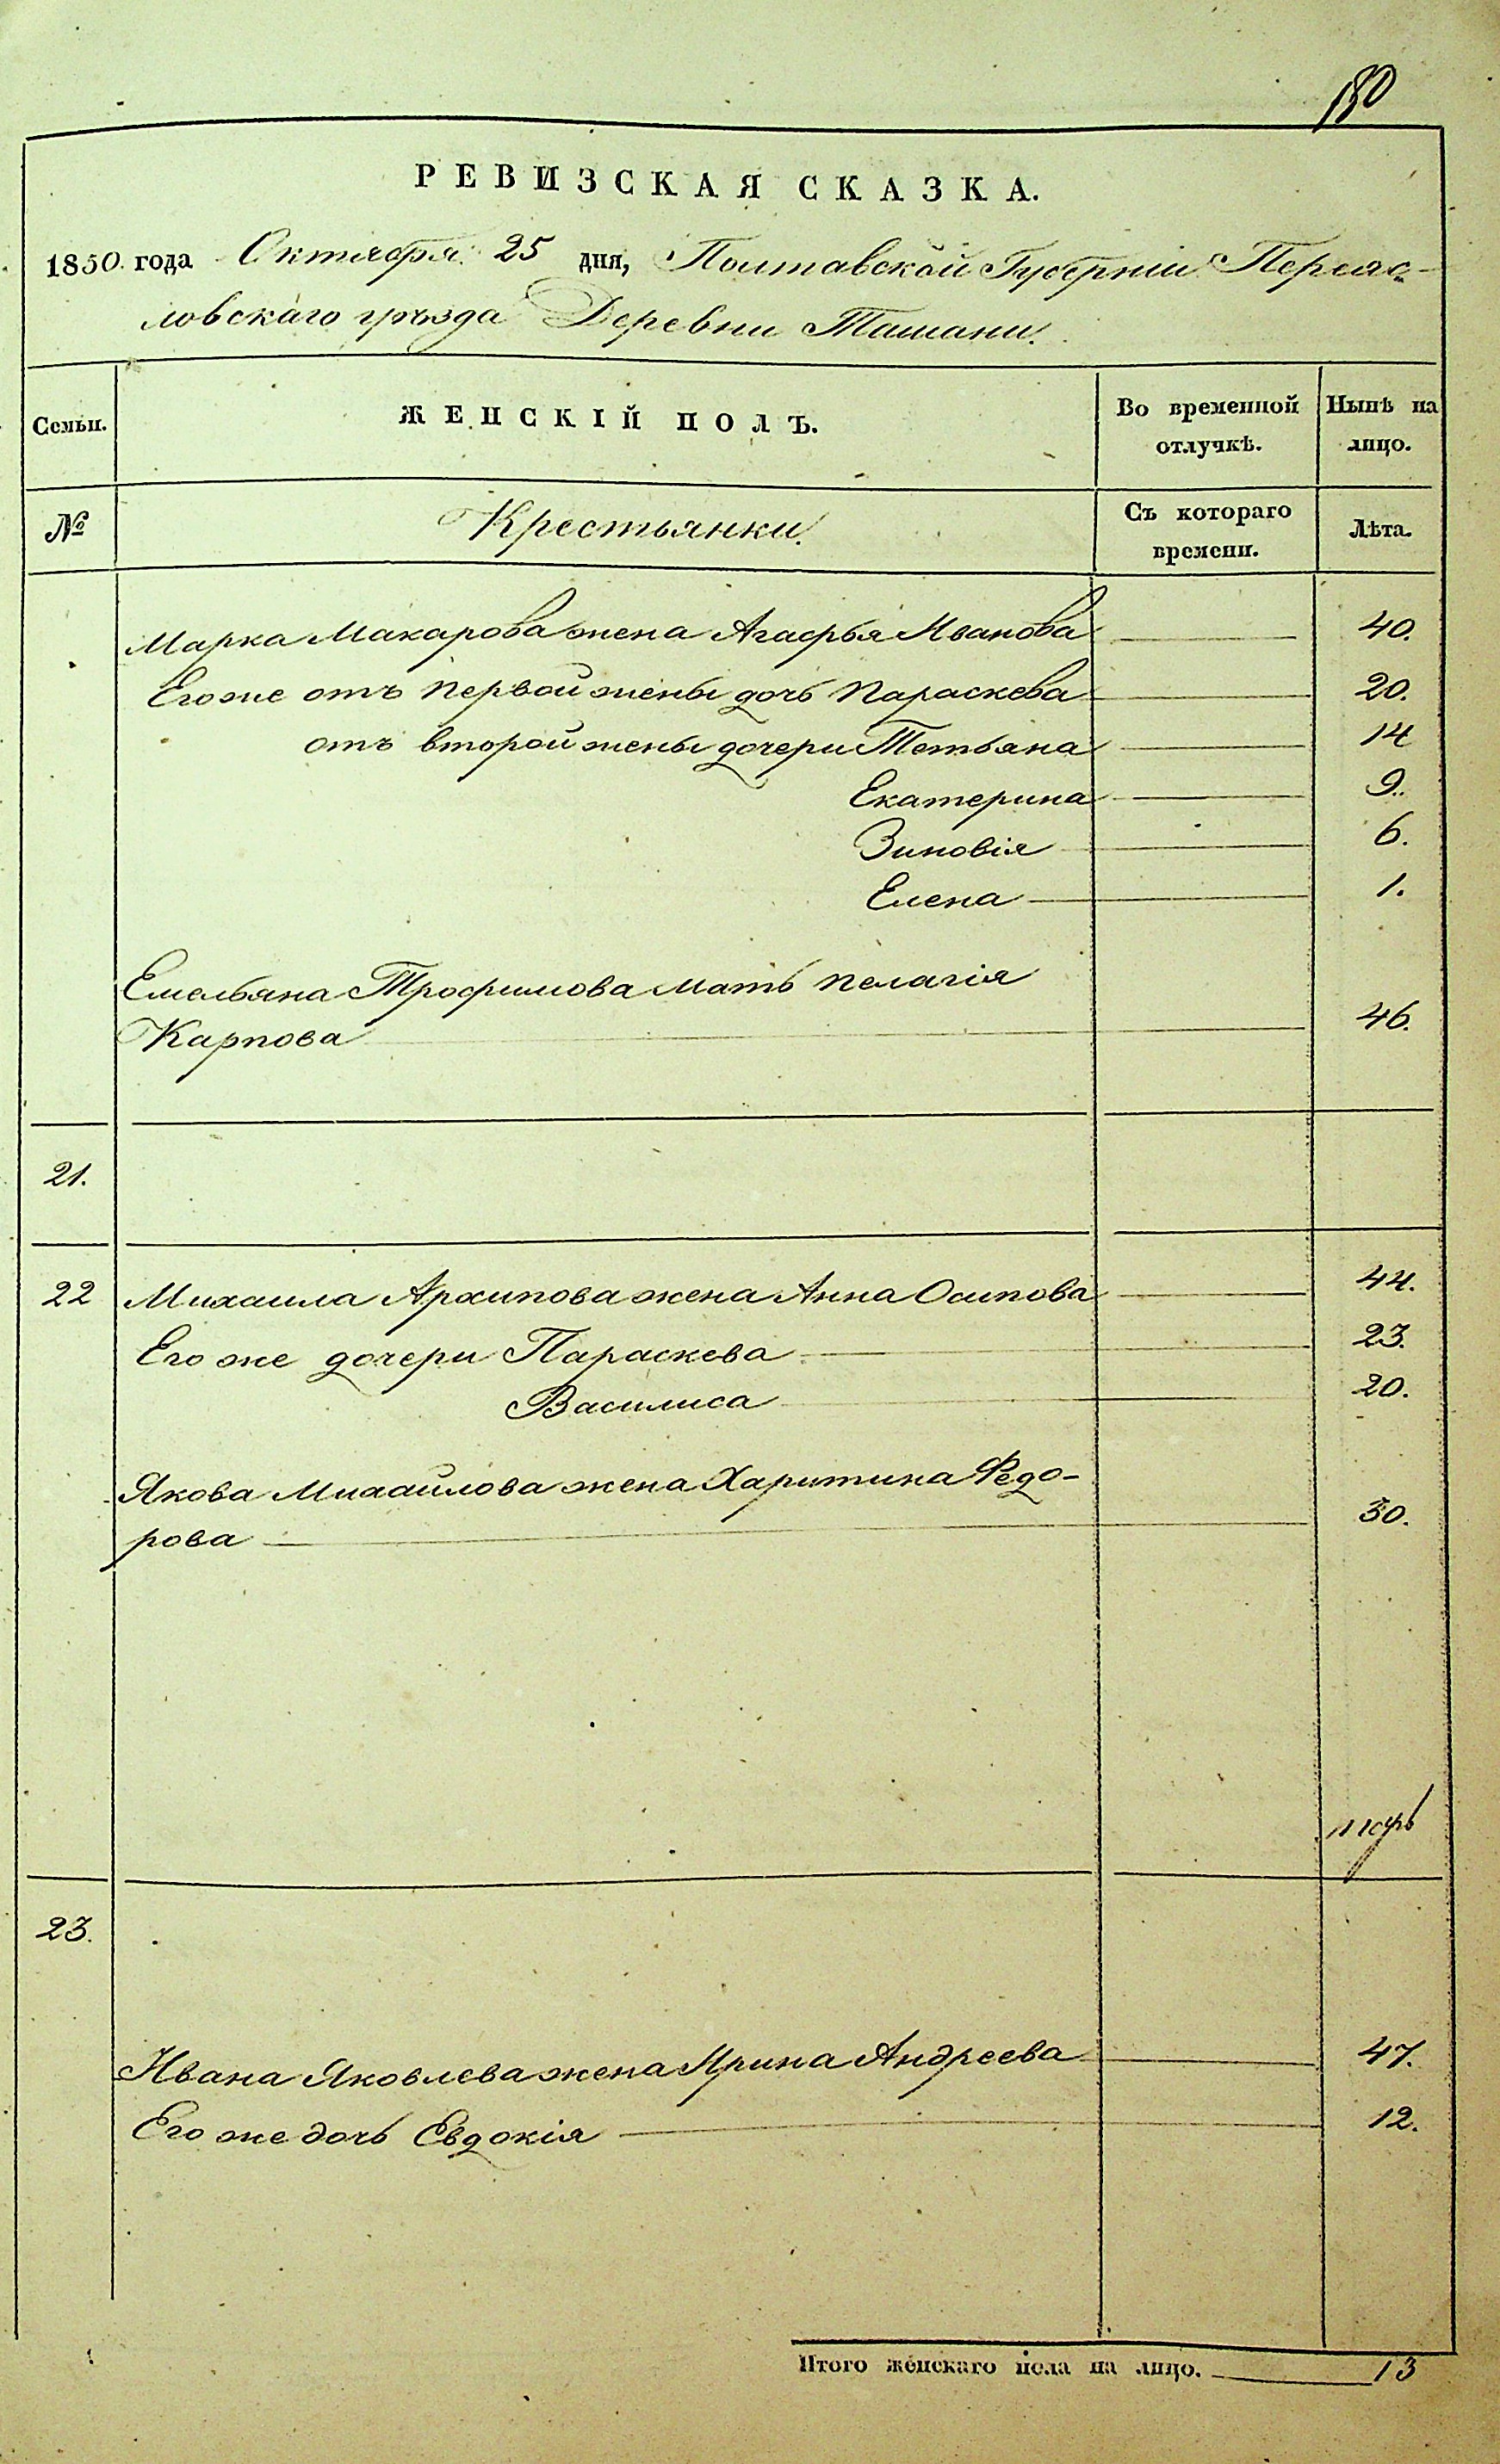 180
РЕВИЗСКАЯ СКАЗКА.
1850 года Октября 25 дня, Полтавской Губерніи Переяс-
ловскаго уѣзда Деревни Ташани.
Семьи. ЖЕНСКІЙ ПОЛЪ. Во временной отлучкѣ. Нынѣ на лицо.
№ Крестьянки. Съ котораго времени. Лѣта.
Марка Макарова жена Агафья Иванова 40.
Его же отъ первой жены дочь Параскева 20.
отъ второй жены дочери Тетьяна 14
Екатерина 9.
Зиновія 6.
Елена 1.
Емельяна Трофимова мать Пелагія
Карпова 46.
21.
22 Михаила Архипова жена Анна Осипова 44.
Его же дочери Параскева 23.
Василиса 20.
Якова Михайлова жена Харитина Федо-
рова 30.
23.
Ивана Яковлева жена Ярина Андреева 47.
Его же дочь Евдокія 12.
Итого женскаго пола на лицо. 13